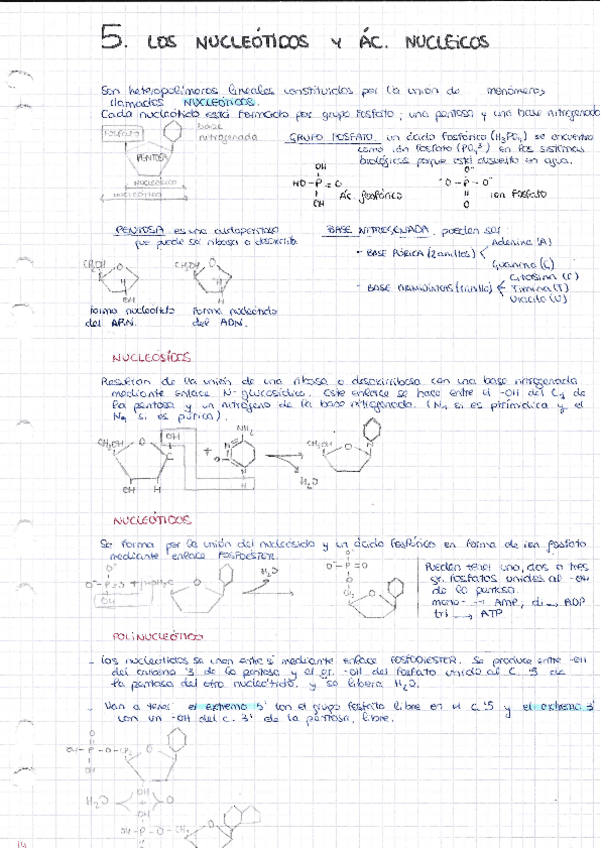 5. LOS NUCLEÓTIDOS Y ÁC. NUCLEICOS
Son heteropolímeros lineales constituidos por la unión de monómeros
llamados NUCLEÓTIDOS.
Cada nucleótido está formado por grupo fosfato, una pentosa y una base nitrogenada
FOSFATO
base
nitrogenada
PENTOSA
NUCLEÓSIDO
NUCLEÓTIDO
GRUPO FOSFATO un ácido fosfórico (H3PO4) se encuentra
como ión fosfato (PO4 3-) en los sistemas
biológicos porque está disuelto en agua.
OH
HO-P=O
OH
Ác fosfórico
O-
-O-P-O-
O
ion fosfato
PENTOSA es una aldopentosa
que puede ser ribosa o desoxirrib.
CH2OH O
OH
forma nucleótido
del ARN.
CH2OH O
H
forma nucleótido
del ADN.
BASE NITROGENADA pueden ser:
- BASE PÚRICA (2 anillos)
Adenina (A)
Guanina (G)
- BASE PIRIMIDÍNICAS (1 anillo)
Citosina (C)
Timina (T)
Uracilo (U)
NUCLEÓSIDOS
Resultan de la unión de una ribosa o desoxirribosa con una base nitrogenada
mediante enlace N-glucosídico. Este enlace se hace entre el -OH del C1 de
la pentosa y un nitrógeno de la base nitrogenada. (N1 si es pirimídica y el
N9 si es púrica).
CH2OH O OH
C
OH H
+
NH2
N
O
N
H
H2O
CH2OH O
NUCLEÓTIDOS
Se forma por la unión del nucleósido y un ácido fosfórico en forma de ion fosfato
mediante enlace FOSFOÉSTER.
H2O
Pueden tener uno, dos o tres
gr. fosfatos unidos al -OH
de la pentosa.
mono- → AMP, di → ADP
tri → ATP
POLINUCLEÓTIDO
- Los nucleótidos se unen entre sí mediante enlace FOSFODIESTER. Se produce entre -OH
del carbono '3 de la pentosa y el gr. -OH del fosfato unido al C. '5 de
la pentosa del otro nucleótido, y se libera H2O.
- Van a tener el extremo 5' con el grupo fosfato libre en el C '5 y el extremo 3'
con un -OH del C. 3' de la pentosa, libre.
OH-P-O-CH2 O
OH
H2O
+
OH
OH-P-O-CH2
14